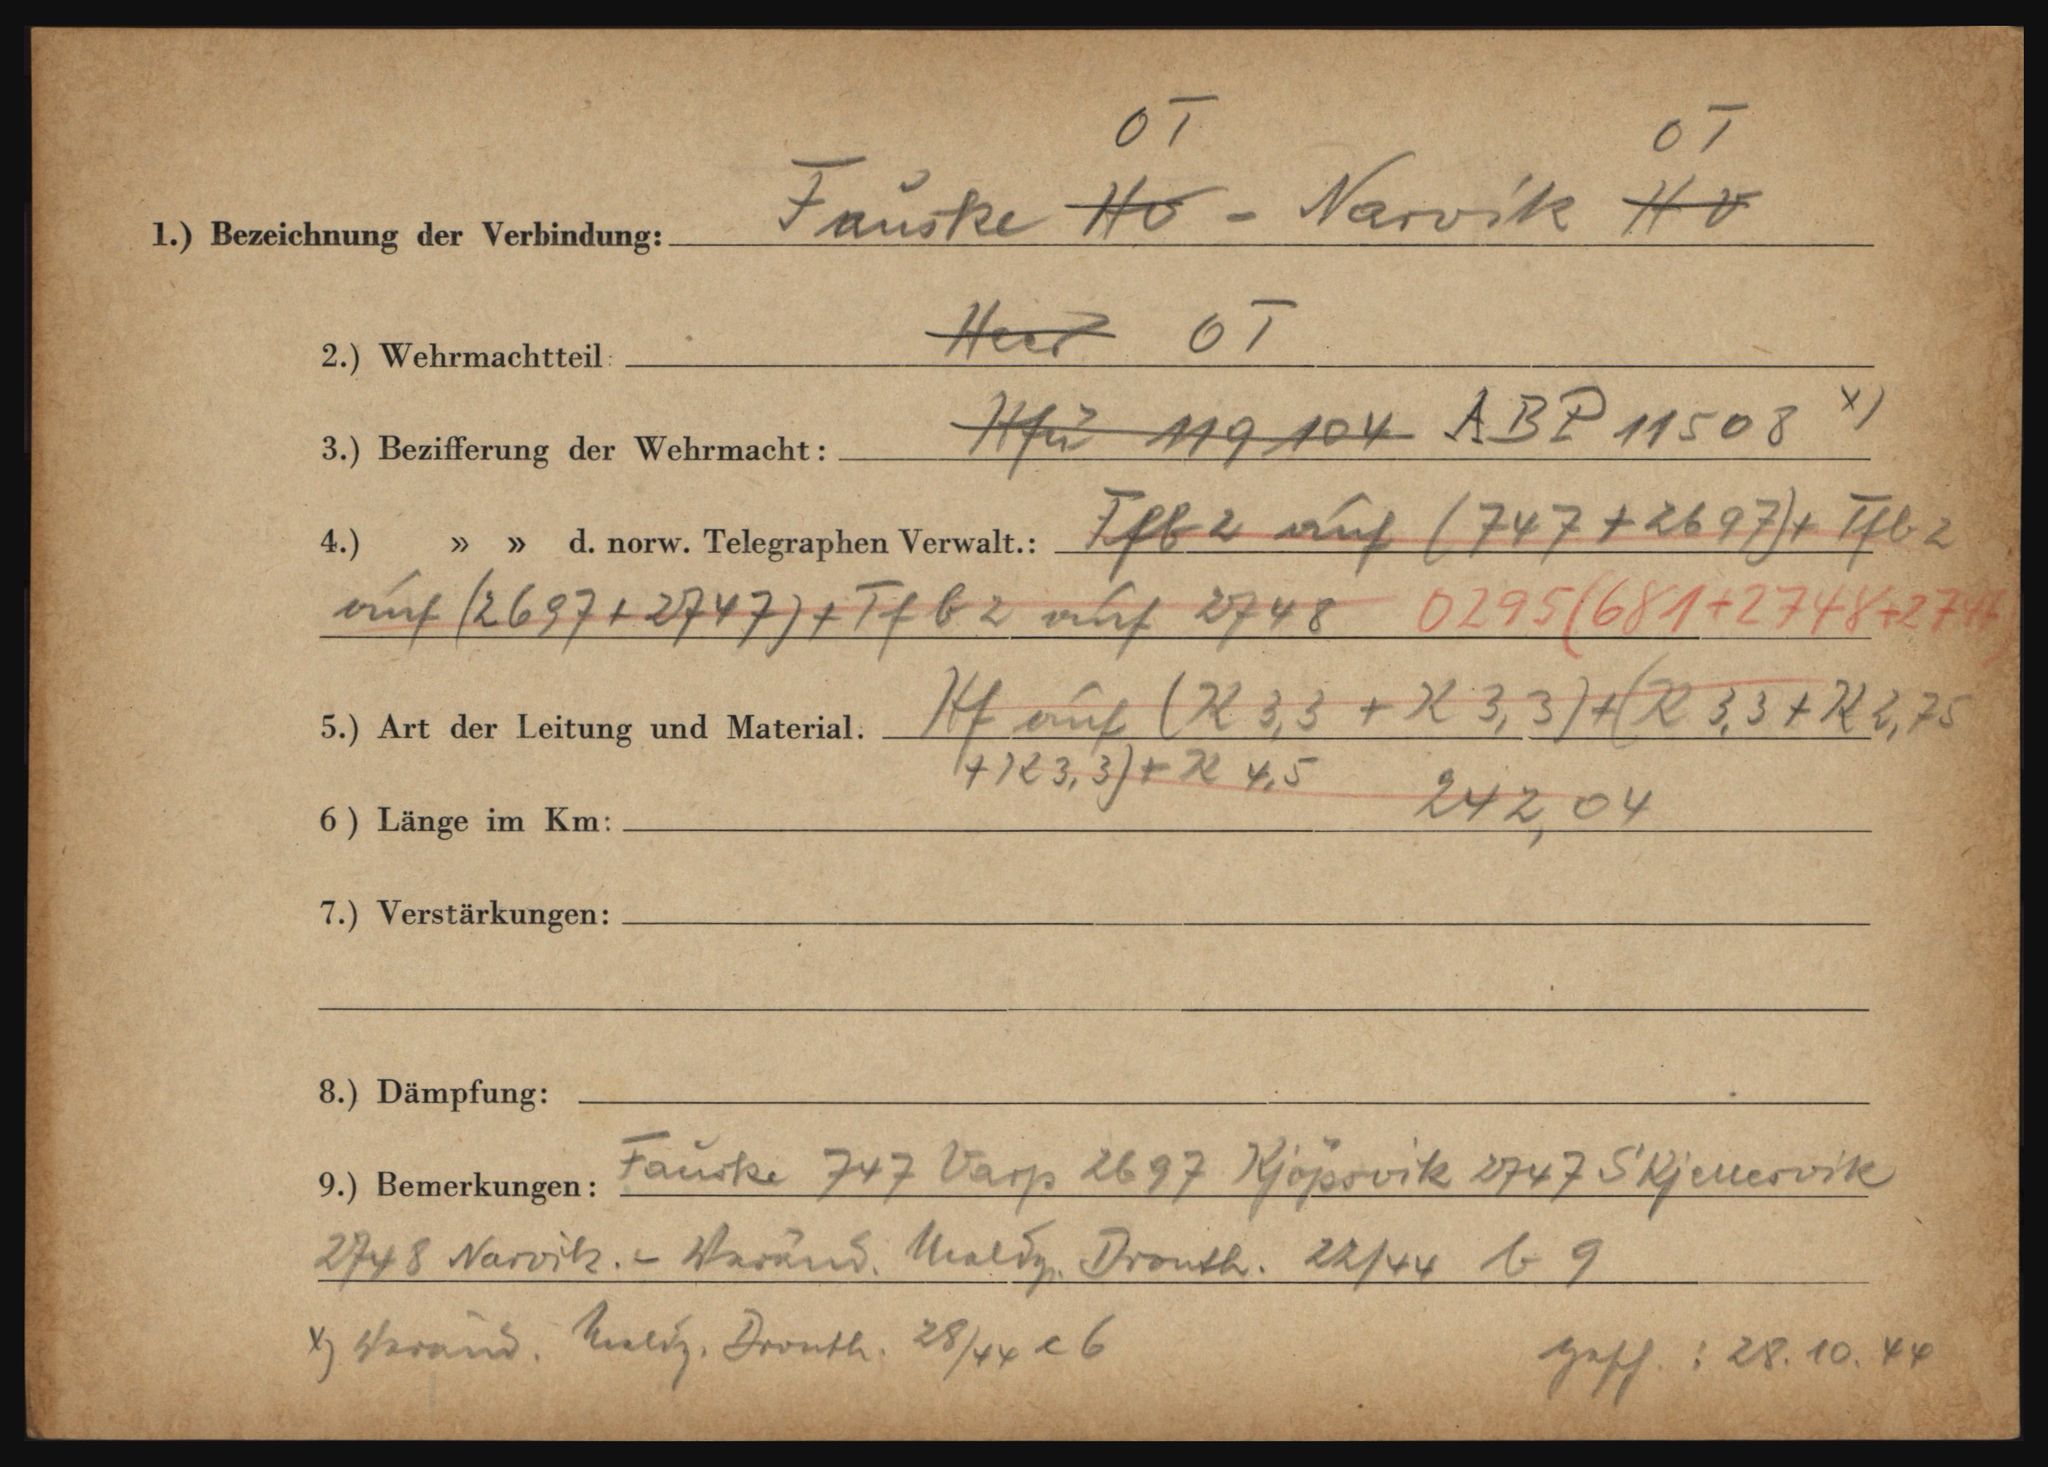 OT OT
1.) Bezeichnung der Verbindung: Fauske Hv - Narvik Hv
2.) Wehrmachtteil: Heer OT
3.) Bezifferung der Wehrmacht: Hfü 119 104 ABP 11508 x)
4.) » » d. norw. Telegraphen Verwalt.: Tfb 2 auf (747 + 2697) + Tfb 2
auf (2697 + 2747) + Tfb 2 auf 2748 0295 (681+2748+2747)
5.) Art der Leitung und Material. Kf auf (K 3,3 + K 3,3) + (K 3,3 + K 2,75
+ K 3,3) + K 4,5
6) Länge im Km: 242,04
7.) Verstärkungen:
8.) Dämpfung:
9.) Bemerkungen: Fauske 747 Varp 2697 Kjöpsvik 2747 Skjellesvik
2748 Narvik. - Veränd. Meldg. Dronth. 22/44 b 9
x) Veränd. Meldg. Dronth. 28/44 c 6
28.10.44